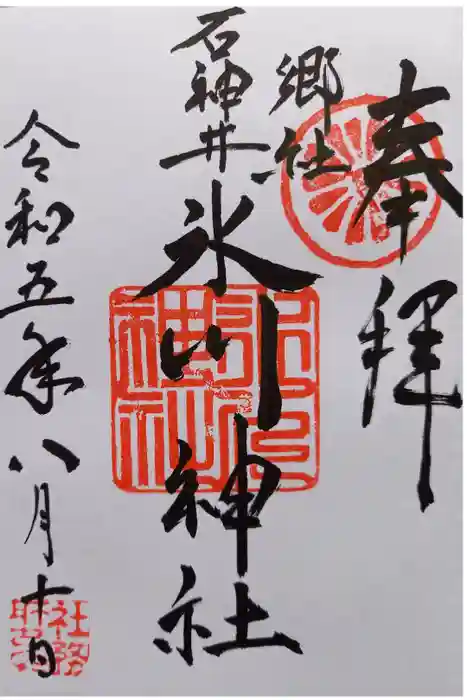 奉拝
郷社
石神井
氷川神社
令和五年八月十日
氷川神社
社務所